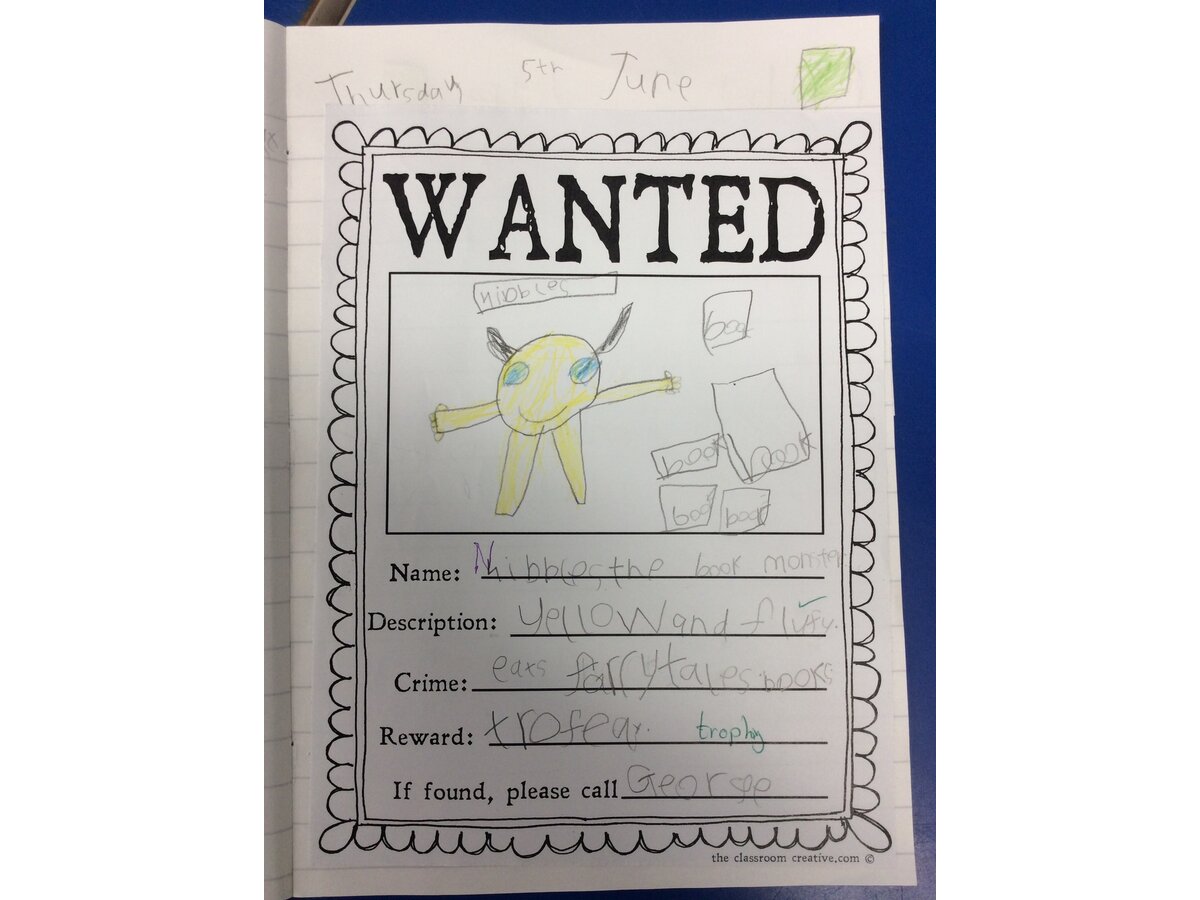 Thursday 5th June
WANTED
nibbles
book
book
book
book
book
Name: Nibbles the book monster
Description: yellow and fluffy.
Crime: eats fairrytales books
Reward: trofey. trophy
If found, please call George
the classroom creative.com ©